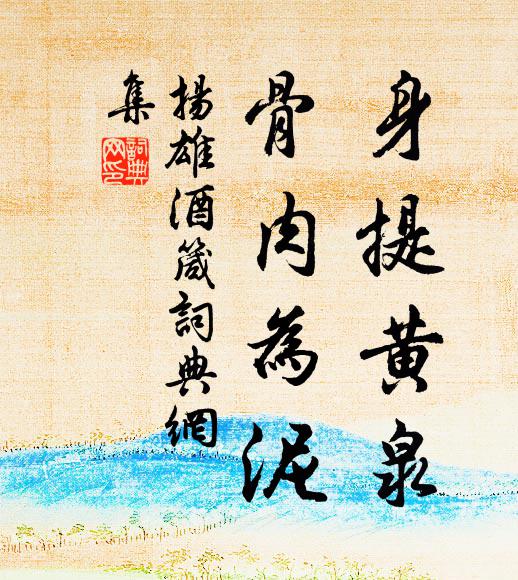 身提黄泉
骨肉為泥
揚雄酒箴詞典網
集
詞典
网印